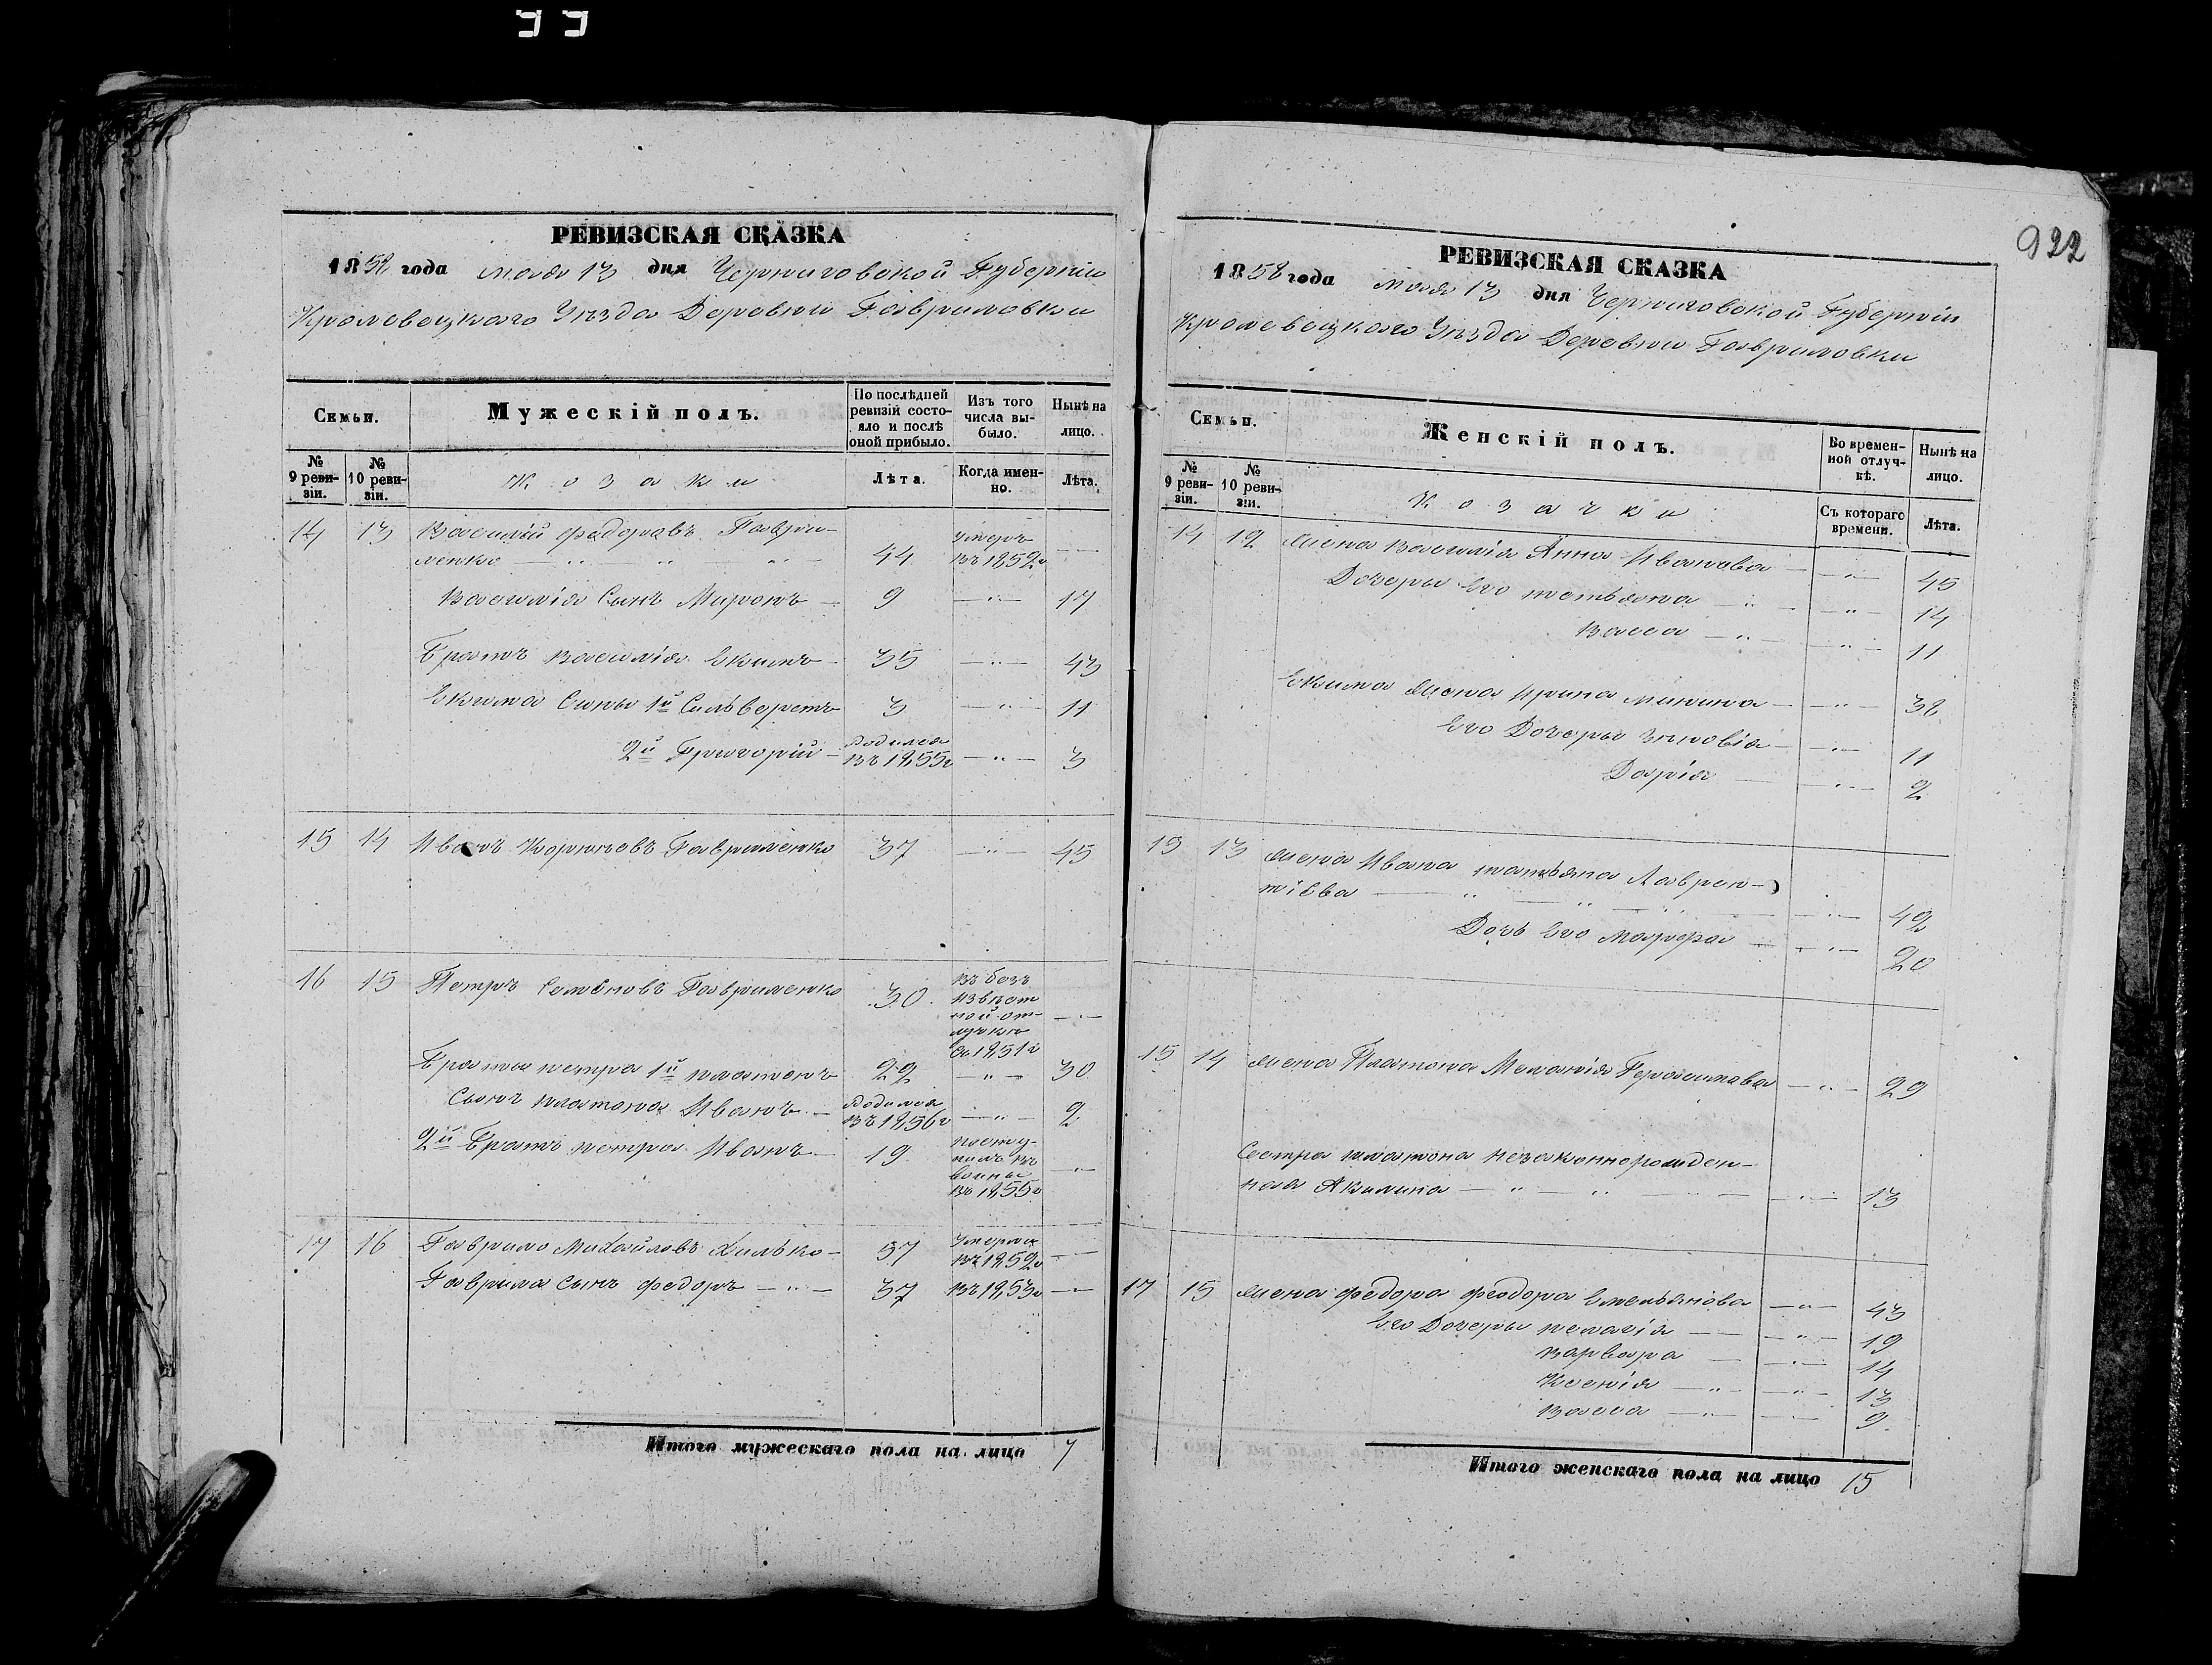 РЕВИЗСКАЯ СКАЗКА
1858 года мая 13 дня Черниговской Губерніи
Кролевецкаго Уезда Деревни Гавриловки
Семьи. Мужескій полъ. По послѣдней ревизіи состояло и послѣ оной прибыло. Изъ того числа выбыло. Нынѣ на лицо.
№ 9 ревизіи. № 10 ревизіи. Козаки Лѣта. Когда именно. Лѣта.
14 13 Василій Федоровъ Гаври-
ленко — „ „ „ — 44 умеръ въ 1852г —
Василія Сынъ Миронъ — 9 — „ — 17
Братъ Василія Екимъ — 35 — „ — 43
Екима Сыны 1й Сильверстъ 3 — „ — 11
2й Григорій — родился въ 1855г — „ — 3
15 14 Иванъ Корнѣевъ Гавриленко 37 — „ — 45
16 15 Петръ Семеновъ Гавриленко 30 въ безъ извѣстной отлучкѣ съ 1851г — „ —
Братья петра 1й платонъ 22 — „ — 30
Сынъ платона Иванъ — родился въ 1856г — „ — 2
2й Братъ петра Иванъ — 19 посту-пилъ въ военые въ 1855г — „ —
17 16 Гаврило Михайловъ Хилько — 57 умерли въ 1852г — „ —
Гаврила Сынъ Федоръ — „ — 37 въ 1853г — „ —
Итого мужескаго пола на лицо 7
922
РЕВИЗСКАЯ СКАЗКА
1858 года мая 13 дня Черниговской Губерніи
Кролевецкаго Уезда Деревни Гавриловки
Семьи. Женскій полъ. Во временной отлучкѣ. Нынѣ на лицо.
№ 9 ревизіи. № 10 ревизіи. Козачки Съ котораго времени. Лѣта.
14 12 жена Василія Анна Иванова — „ — 45
Дочеры Его татьяна — „ — — „ — 14
Васса — „ — — „ — 11
Екима жена Ирина Минина — — „ — 38
Его Дочеры Зиновія — — „ — 11
Дарія — — „ — 2
15 13 жена Ивана татьяна Лаврен-
тіева — „ „ „ — — „ — 42
Дочь Его Марфа — — „ — 20
15 14 жена Платона Меланія Герасимова — „ — 29
Сестра платона незаконнорожден-
ная Акилина — „ — „ — — „ — 13
17 15 жена Федора Феодора Емельянова — „ — 43
Его Дочеры пелагія — — „ — 19
варвара — — „ — 14
Ксенія — „ — — „ — 13
Васса — „ — — „ — 9
Итого женскаго пола на лицо 15